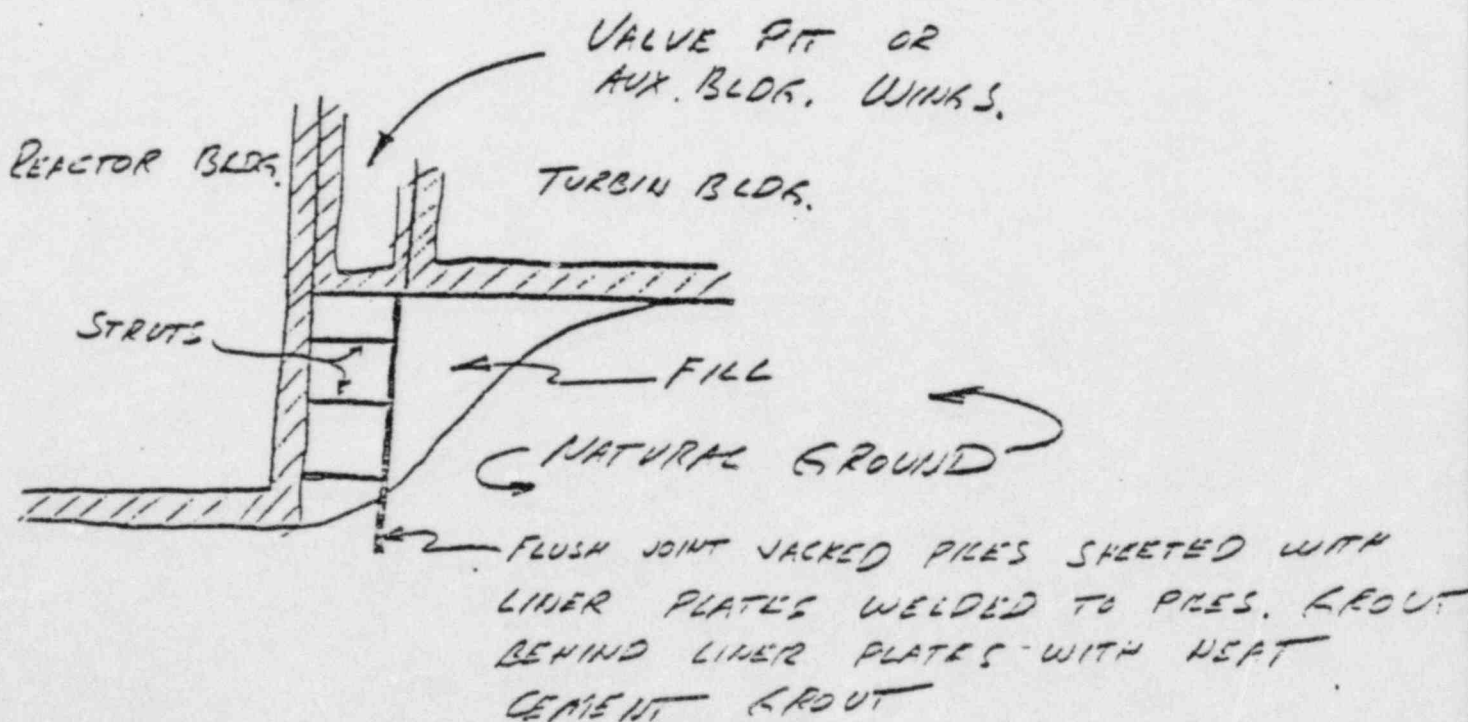 VALVE PIT OR
AUX. BLDG. WINGS.
REACTOR BLDG.
TURBIN BLDG.
STRUTS
FILL
NATURAL GROUND
FLUSH JOINT JACKED PILES SHEETED WITH
LINER PLATES WELDED TO PILES. GROUT
BEHIND LINER PLATES WITH NEAT
CEMENT GROUT